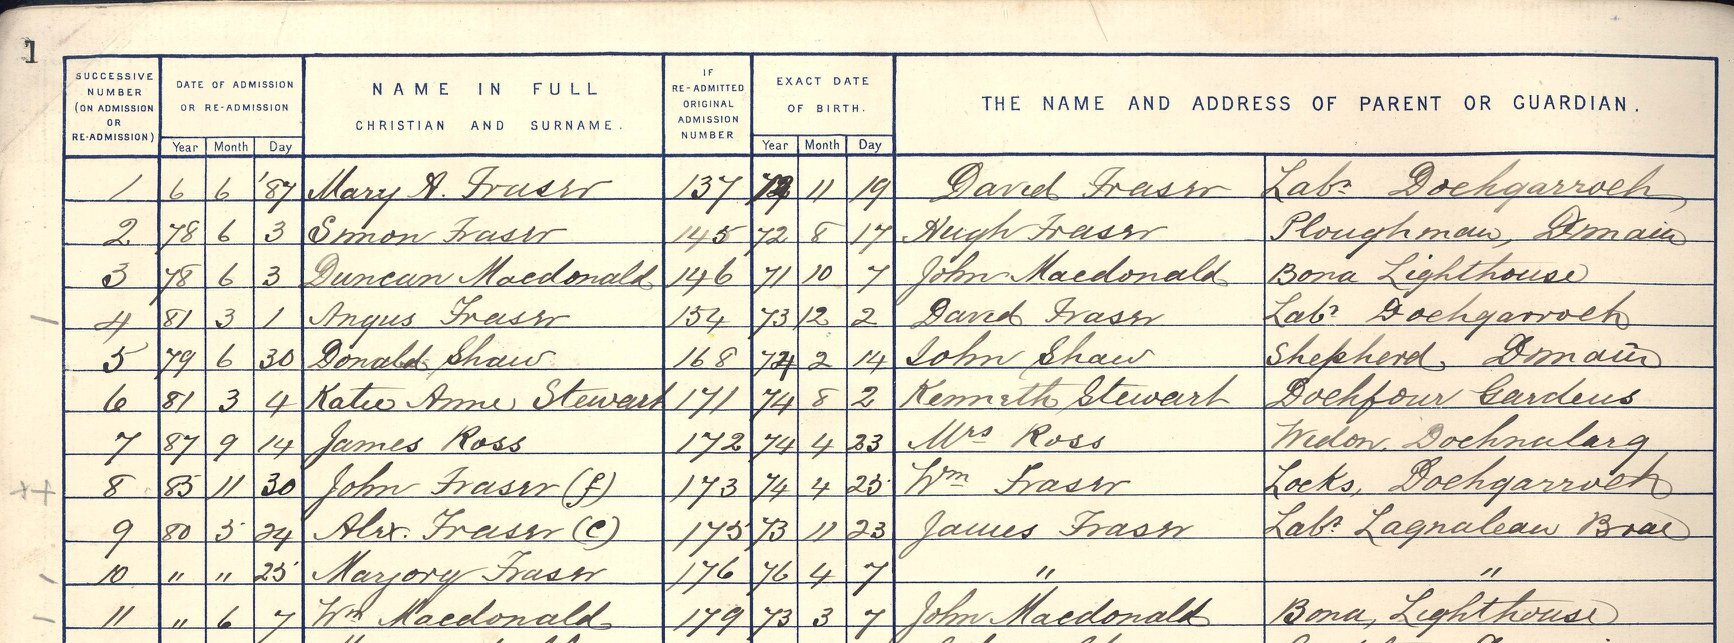 1
SUCCESSIVE NUMBER (ON ADMISSION OR RE-ADMISSION) DATE OF ADMISSION OR RE-ADMISSION NAME IN FULL CHRISTIAN AND SURNAME. IF RE-ADMITTED ORIGINAL ADMISSION NUMBER EXACT DATE OF BIRTH. THE NAME AND ADDRESS OF PARENT OR GUARDIAN.
Year Month Day Year Month Day
1 6 6 '87 Mary A. Fraser 137 11 19 David Fraser Labr Dochgarroch
2 78 6 3 Simon Fraser 145 72 8 17 Hugh Fraser Ploughman, Dmain
3 78 6 3 Duncan Macdonald 146 71 10 7 John Macdonald Bona Lighthouse
4 81 3 1 Angus Fraser 154 73 12 2 David Fraser Labr Dochgarroch
5 79 6 30 Donald Shaw 168 74 2 14 John Shaw Shepherd. Dmain
6 81 3 4 Katie Anne Stewart 171 74 8 2 Kenneth Stewart Dochfour Gardens
7 87 9 14 James Ross 172 74 4 23 Mrs Ross Widow. Dochnalurg
8 85 11 30 John Fraser (f) 173 74 4 25 Wm Fraser Locks, Dochgarroch
9 80 5 24 Alex. Fraser (c) 175 73 11 23 James Fraser Labr Lagnalean Brae
10 " " 25 Marjory Fraser 176 76 4 7 " "
11 " 6 7 Wm Macdonald 179 73 3 7 John Macdonald Bona, Lighthouse